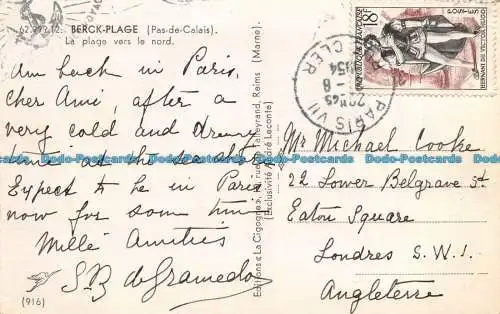 62.292.12. BERCK-PLAGE (Pas-de-Calais).
La plage vers le nord.
Am back in Paris,
cher Ami, after a
very cold and
time at the sea side
Expect to be in Paris
now for some time
Mille Amitiés
(916)
Editions « La Cigogne », rue Talleyrand, Reims (Marne).
(Exclusivité André Leconte)
18F
POSTES
HERNANI DE VICTOR HUGO
PARIS VII
CLER
Mr Michael Cooke
22 Lower Belgrave St
Eaton Square
Londres S.W.1.
Angleterre
Dodo-Postcards Dodo-Postcards Dodo-Postcards Dodo-Postcards Dodo-Postcards